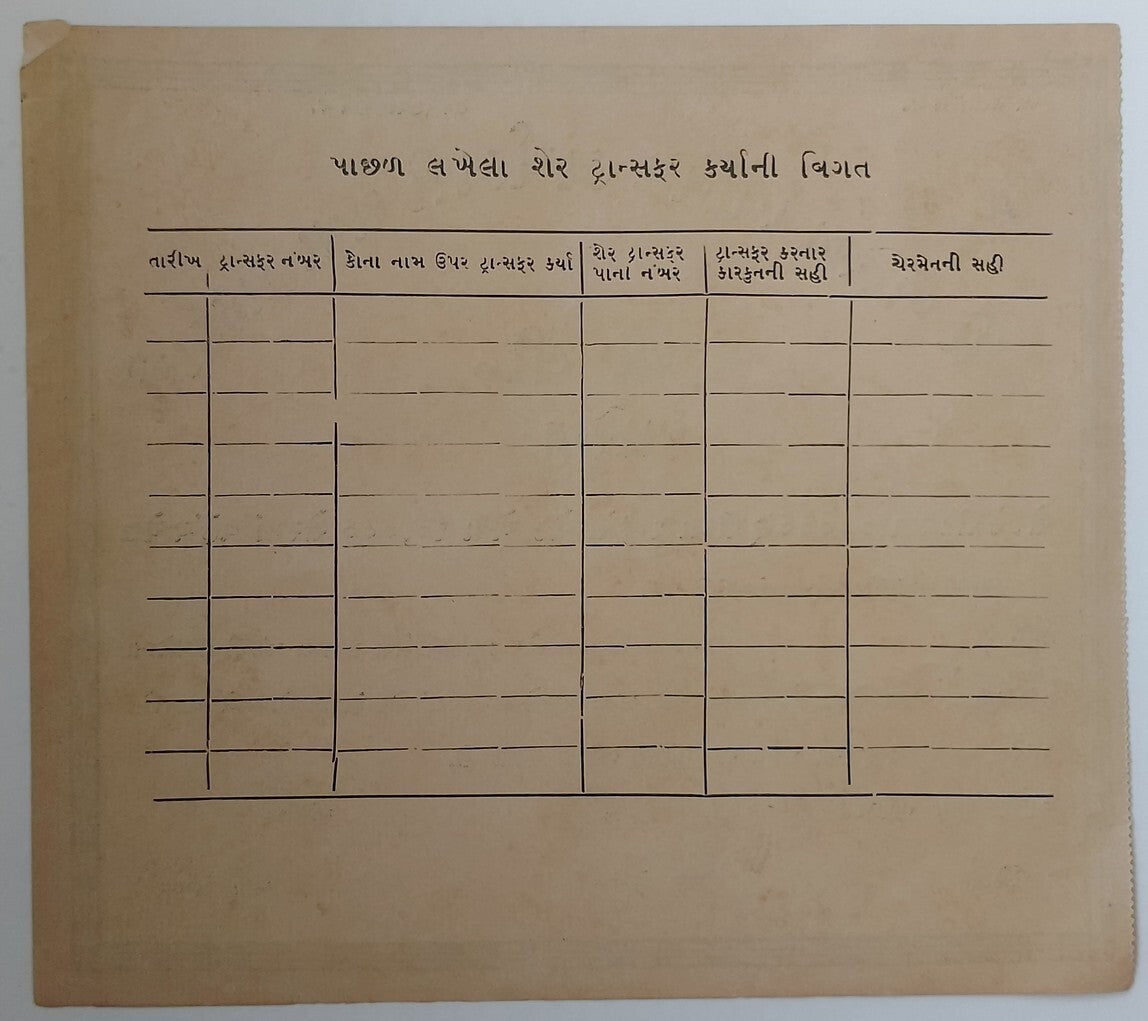 પાછળ લખેલા શેર ટ્રાન્સફર કર્યાની વિગત
તારીખ ટ્રાન્સફર નંબર કોના નામ ઉપર ટ્રાન્સફર કર્યા શેર ટ્રાન્સફર ટ્રાન્સફર કરનાર ચેરમેનની સહી
પાના નંબર કારકુનની સહી